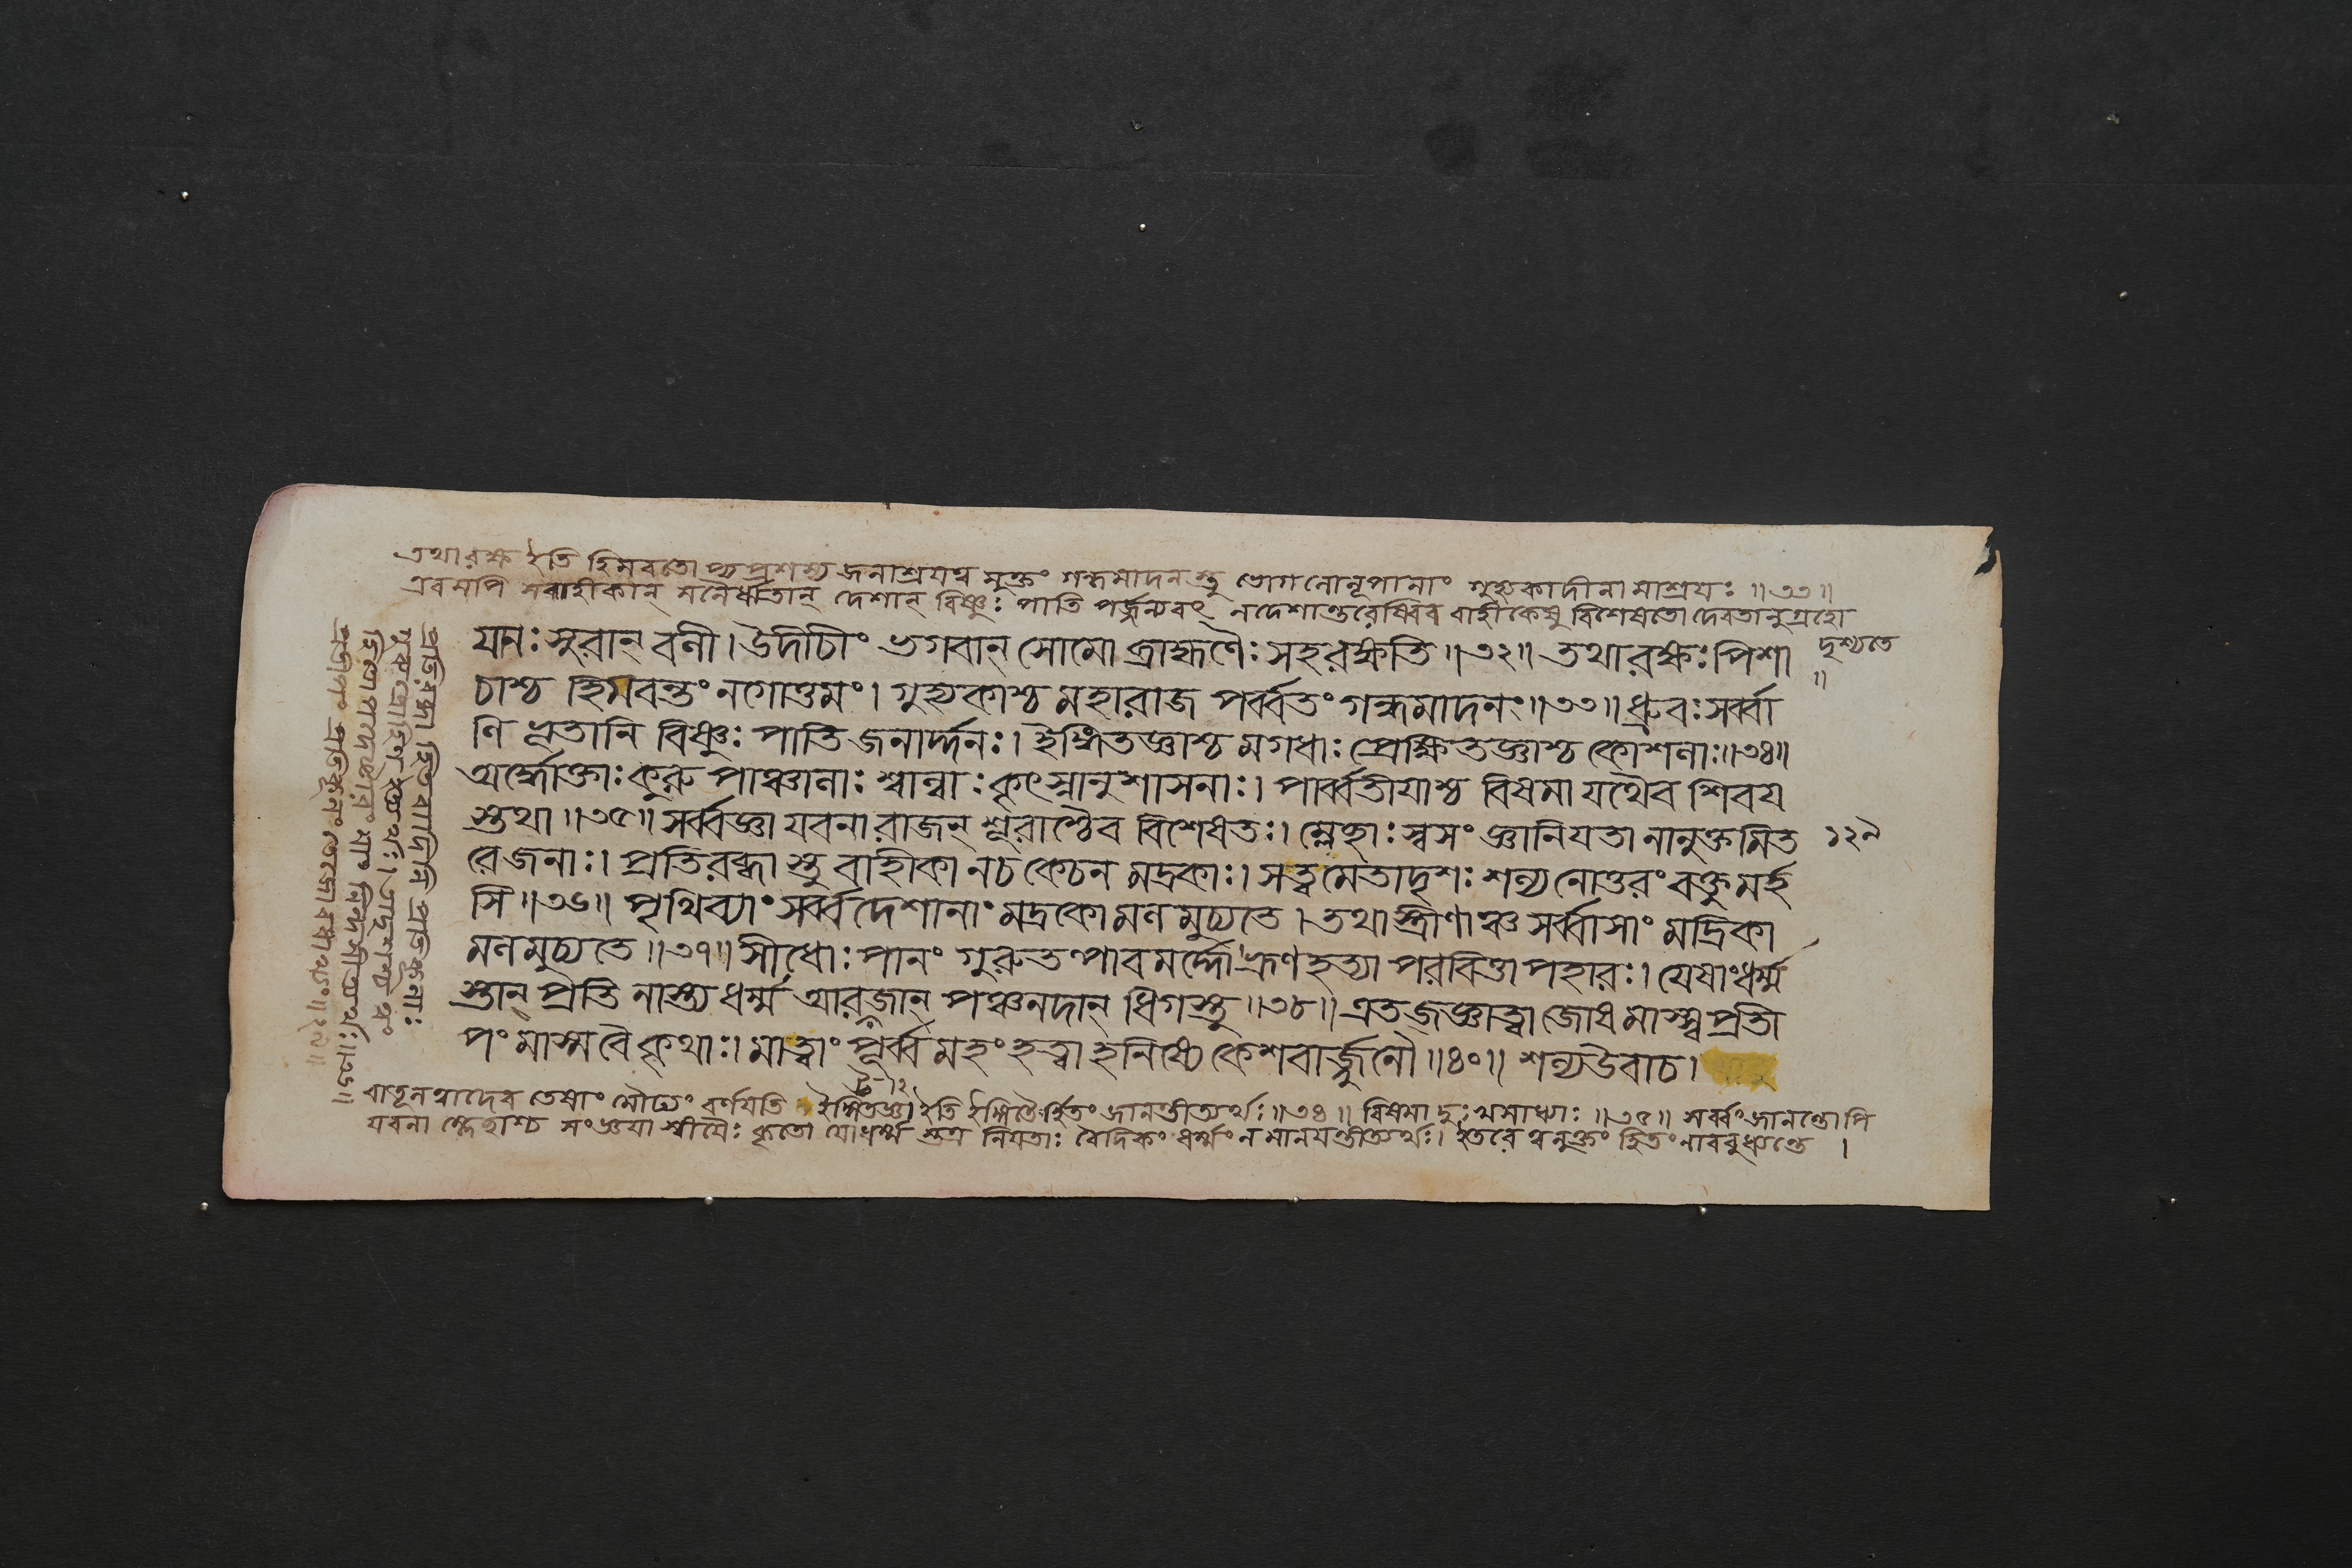 তথারক্ষ ইতি হিমবতোপ্যপ্রশস্য জনাশ্রয়ত্ব মুক্তং গন্ধমাদনস্তু ভোগলোলুপানাং গুহ্যকাদীনামাশ্রয়ঃ ॥৩৩॥
এবমপি সবাহীকান্ দেশান্ বিষ্ণুঃ পাতি পর্জ্জন্যবৎ নদেশান্তরেষ্বিব বাহীকেষু বিশেষতো দেবতানুগ্রহো
দৃশ্যতে ॥
যানঃ সুরান্ বলী। উদীচীং ভগবান্ সোমো ব্রাহ্মণৈঃ সহরক্ষতি॥৩২॥ তথারক্ষঃ পিশা
চাশ্চ হিমবন্তং নগোত্তমং। গুহ্যকাশ্চ মহারাজ পর্ব্বতং গন্ধমাদনং॥৩৩॥ ধ্রুবঃ সর্ব্বা
ণি ভূতানি বিষ্ণুঃ পাতি জনার্দ্দনঃ। ইঙ্গিতজ্ঞাশ্চ মগধাঃ প্রেক্ষিতজ্ঞাশ্চ কোশলাঃ॥৩৪॥
অর্দ্ধোক্তাঃ কুরু পাঞ্চালাঃ শাল্বাঃ কৃৎস্নানুশাসনাঃ। পার্ব্বতীয়াশ্চ বিষমা যথৈব শিবয়
স্তথা॥৩৫॥ সর্ব্বজ্ঞা যবনা রাজন্ শূরাশ্চৈব বিশেষতঃ। ম্লেচ্ছাঃ স্বসংজ্ঞানিয়তা নানুক্তমিত
১২৯
রেজনাঃ। প্রতিরব্ধাস্তু বাহীকা নচ কেচন মদ্রকাঃ। সত্বমেতাদৃশঃ শল্য নোত্তরং বক্তুমর্হ
সি॥৩৬॥ পৃথিব্যাং সর্ব্বদেশানাং মদ্রকো মলমুচ্যতে। তথা স্ত্রীণাঞ্চ সর্ব্বাসাং মদ্রিকা
মলমুচ্যতে॥৩৭॥ সীধোঃ পানং গুরুতল্পাবমর্দ্দো ভ্রূণহত্যা পরবিত্তাপহারঃ। যেষাং ধর্ম্ম
স্তান্ প্রতি নাস্ত্যধর্ম্ম আরট্টজান্ পঞ্চনদান্ ধিগস্তু॥৩৮॥ এতজ্জ্ঞাত্বা জোষমাস্স্ব প্রতী
পং মাস্ম বৈ কৃথাঃ। মাত্বাং পূর্ব্বমহং হত্বা হনিষ্যে কেশবার্জ্জুনৌ॥৪০॥ শল্যউবাচ।
বাতূলত্বাদেব তেষাং মৌঢ্যং বর্ণয়তি ইঙ্গিতজ্ঞা ইতি ইঙ্গিতৈর্হিতং জানন্তীত্যর্থঃ॥৩৪॥ বিষমা দুঃখসাধ্যাঃ॥৩৫॥ সর্ব্বং জানন্তোপি
যবনা ম্লেচ্ছাশ্চ সংজ্ঞয়া স্বীয়ৈঃ কৃতো যোধর্ম্ম স্তত্র নিয়তাঃ বৈদিকং ধর্ম্মং ন মানয়ন্তীত্যর্থঃ। ইতরে ত্বনুক্তং হিতং নাববুধ্যন্তে।
প্রতিরব্ধা হিতবাদিনি প্রতিকূলাঃ